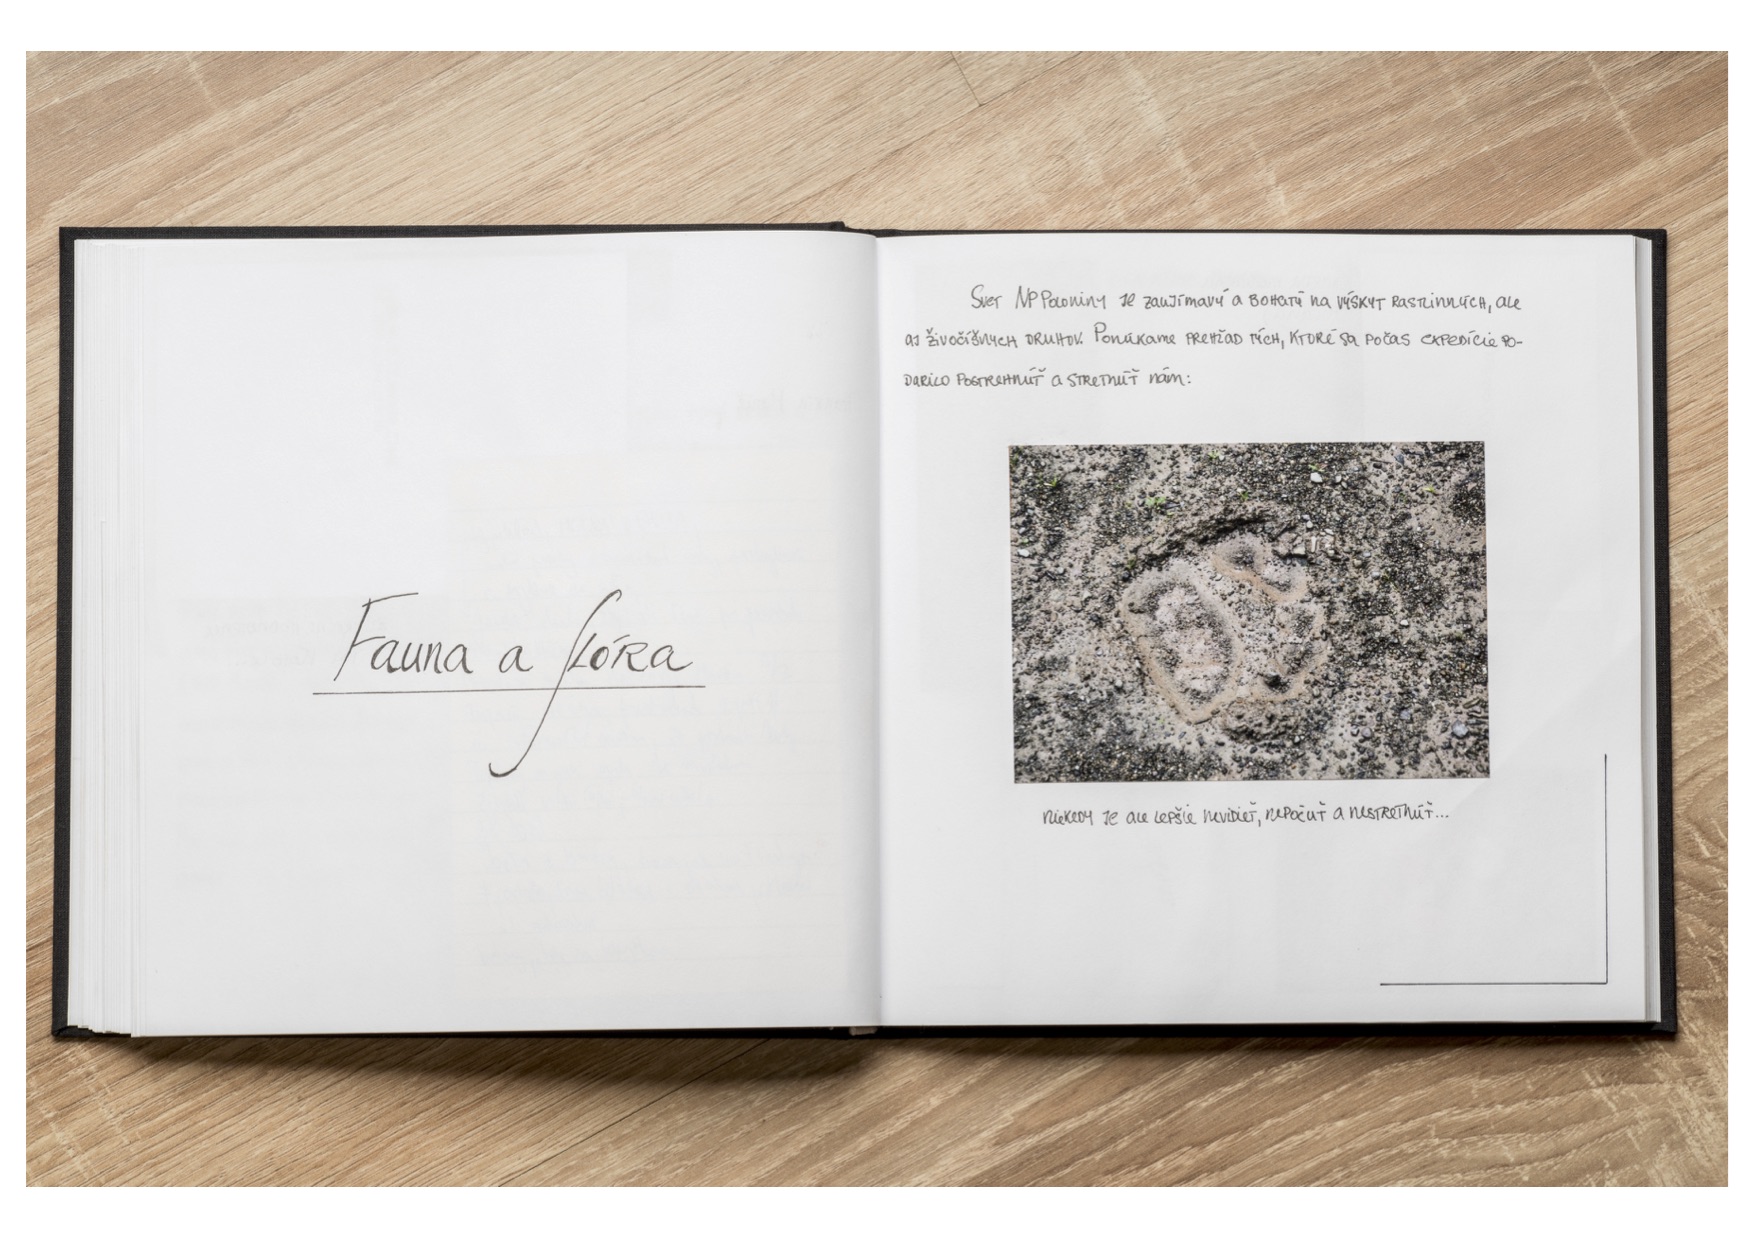 Fauna a flóra
Svet NP Poloniny je zaujímavý a bohatý na výskyt rastlinných, ale
aj živočíšnych druhov. Ponúkame prehľad tých, ktoré sa počas expedície po-
darilo postrehnúť a stretnúť nám:
Niekedy je ale lepšie nevidieť, nepočuť a nestretnúť...